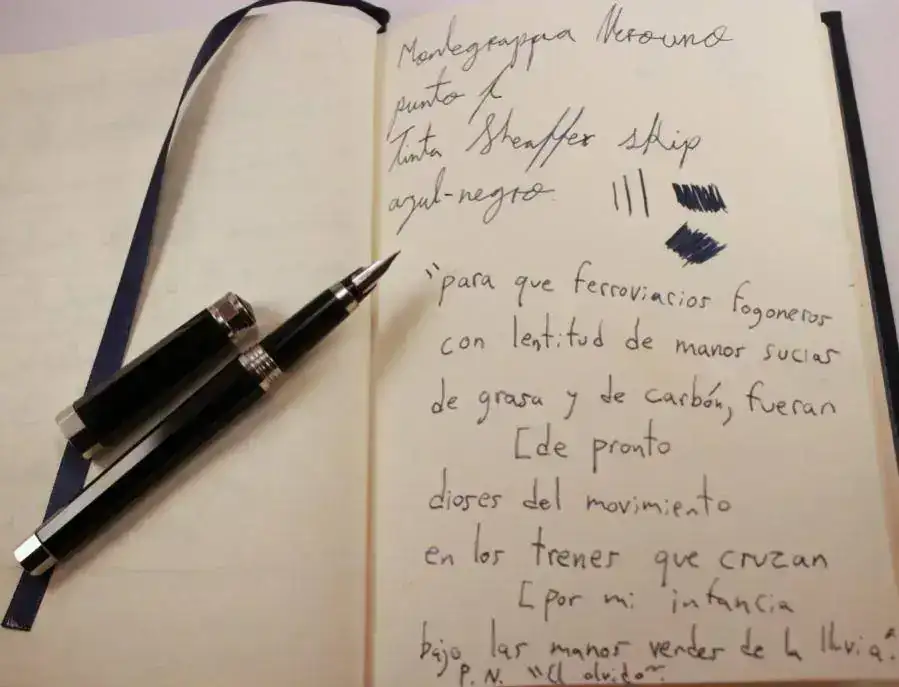 Montegrappa Nerouno
punto f
Tinta Sheaffer skip
azul-negro.
"para que ferroviarios fogoneros
con lentitud de manos sucias
de grasa y de carbón, fueran
[de pronto
dioses del movimiento
en los trenes que cruzan
[por mi infancia
bajo las manos verdes de la lluvia".
P. N. "El olvido".